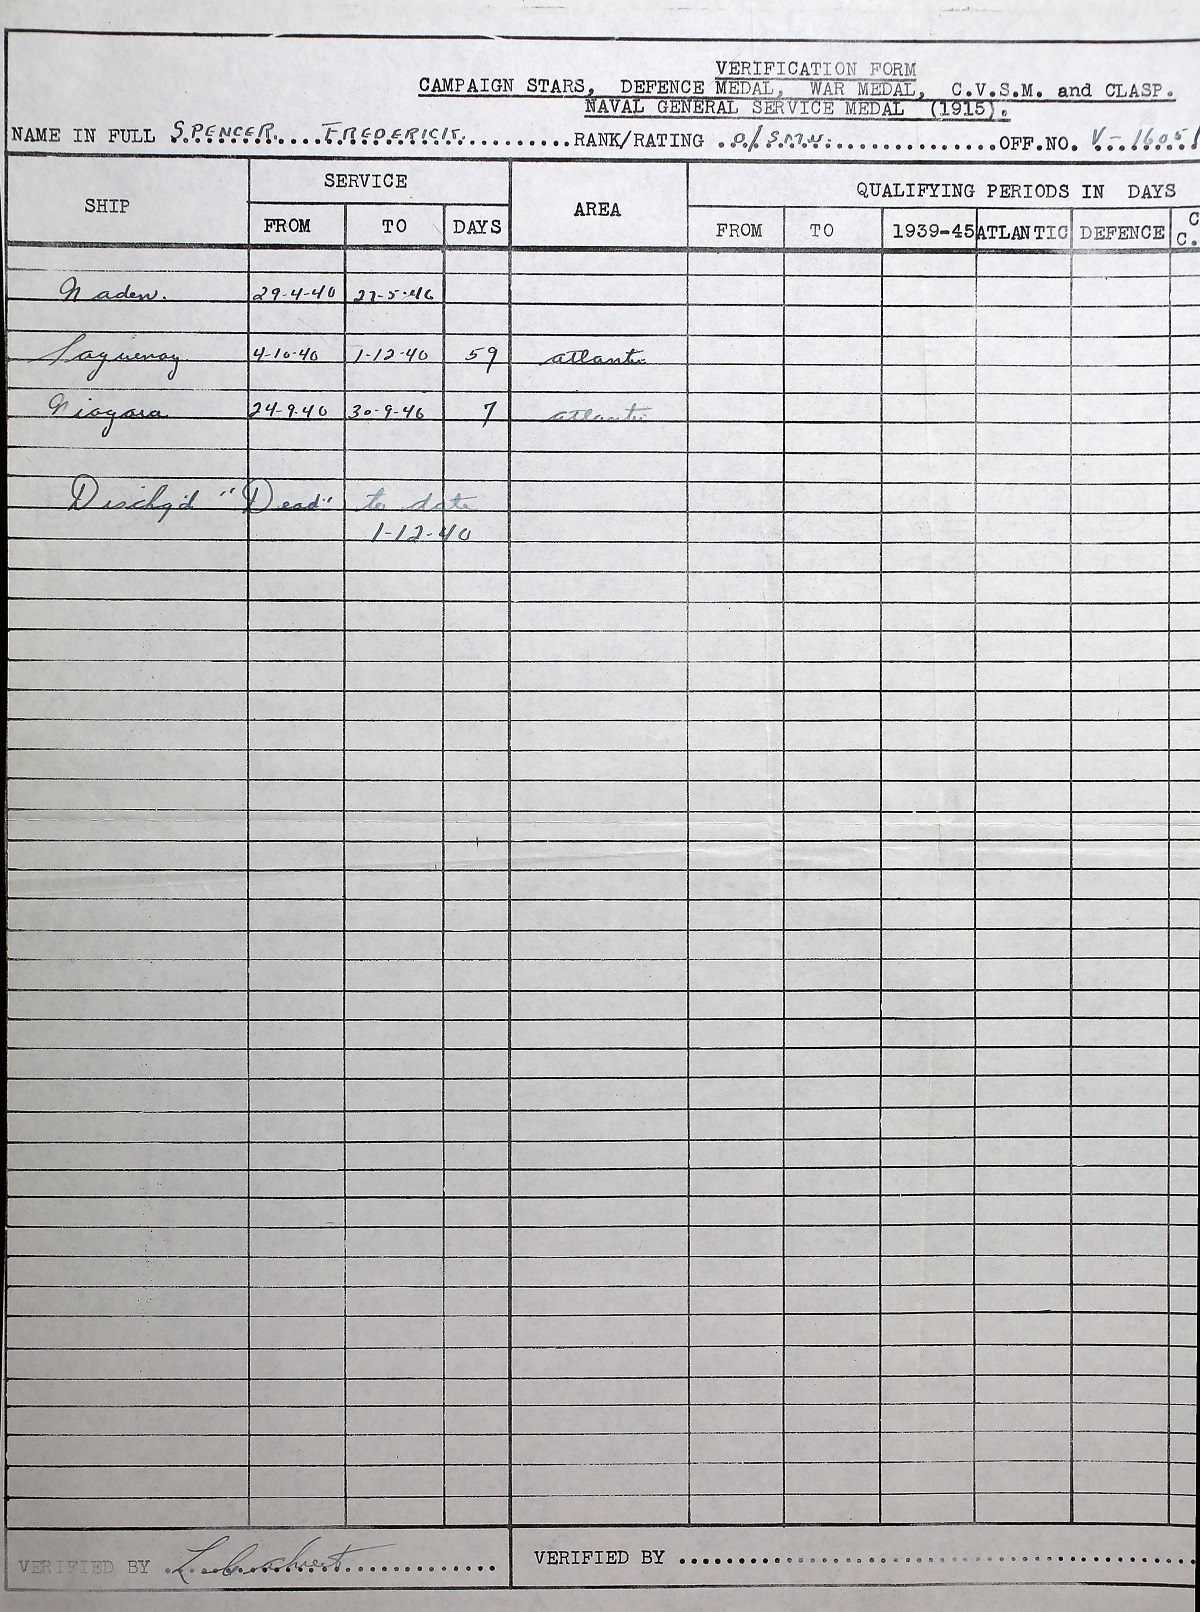 VERIFICATION FORM
CAMPAIGN STARS, DEFENCE MEDAL, WAR MEDAL, C.V.S.M. and CLASP.
NAVAL GENERAL SERVICE MEDAL (1915).
NAME IN FULL SPENCER FREDERICK. RANK/RATING O/SMN. OFF.NO. V-1605
SHIP SERVICE AREA QUALIFYING PERIODS IN DAYS
FROM TO DAYS FROM TO 1939-45 ATLANTIC DEFENCE C
C.
Naden. 29-4-40 27-5-46
Saguenay 4-10-40 1-12-40 59 atlantic
Niagara 24-9-40 30-9-40 7 atlantic
Dischg'd "Dead" to date
1-12-40
VERIFIED BY VERIFIED BY